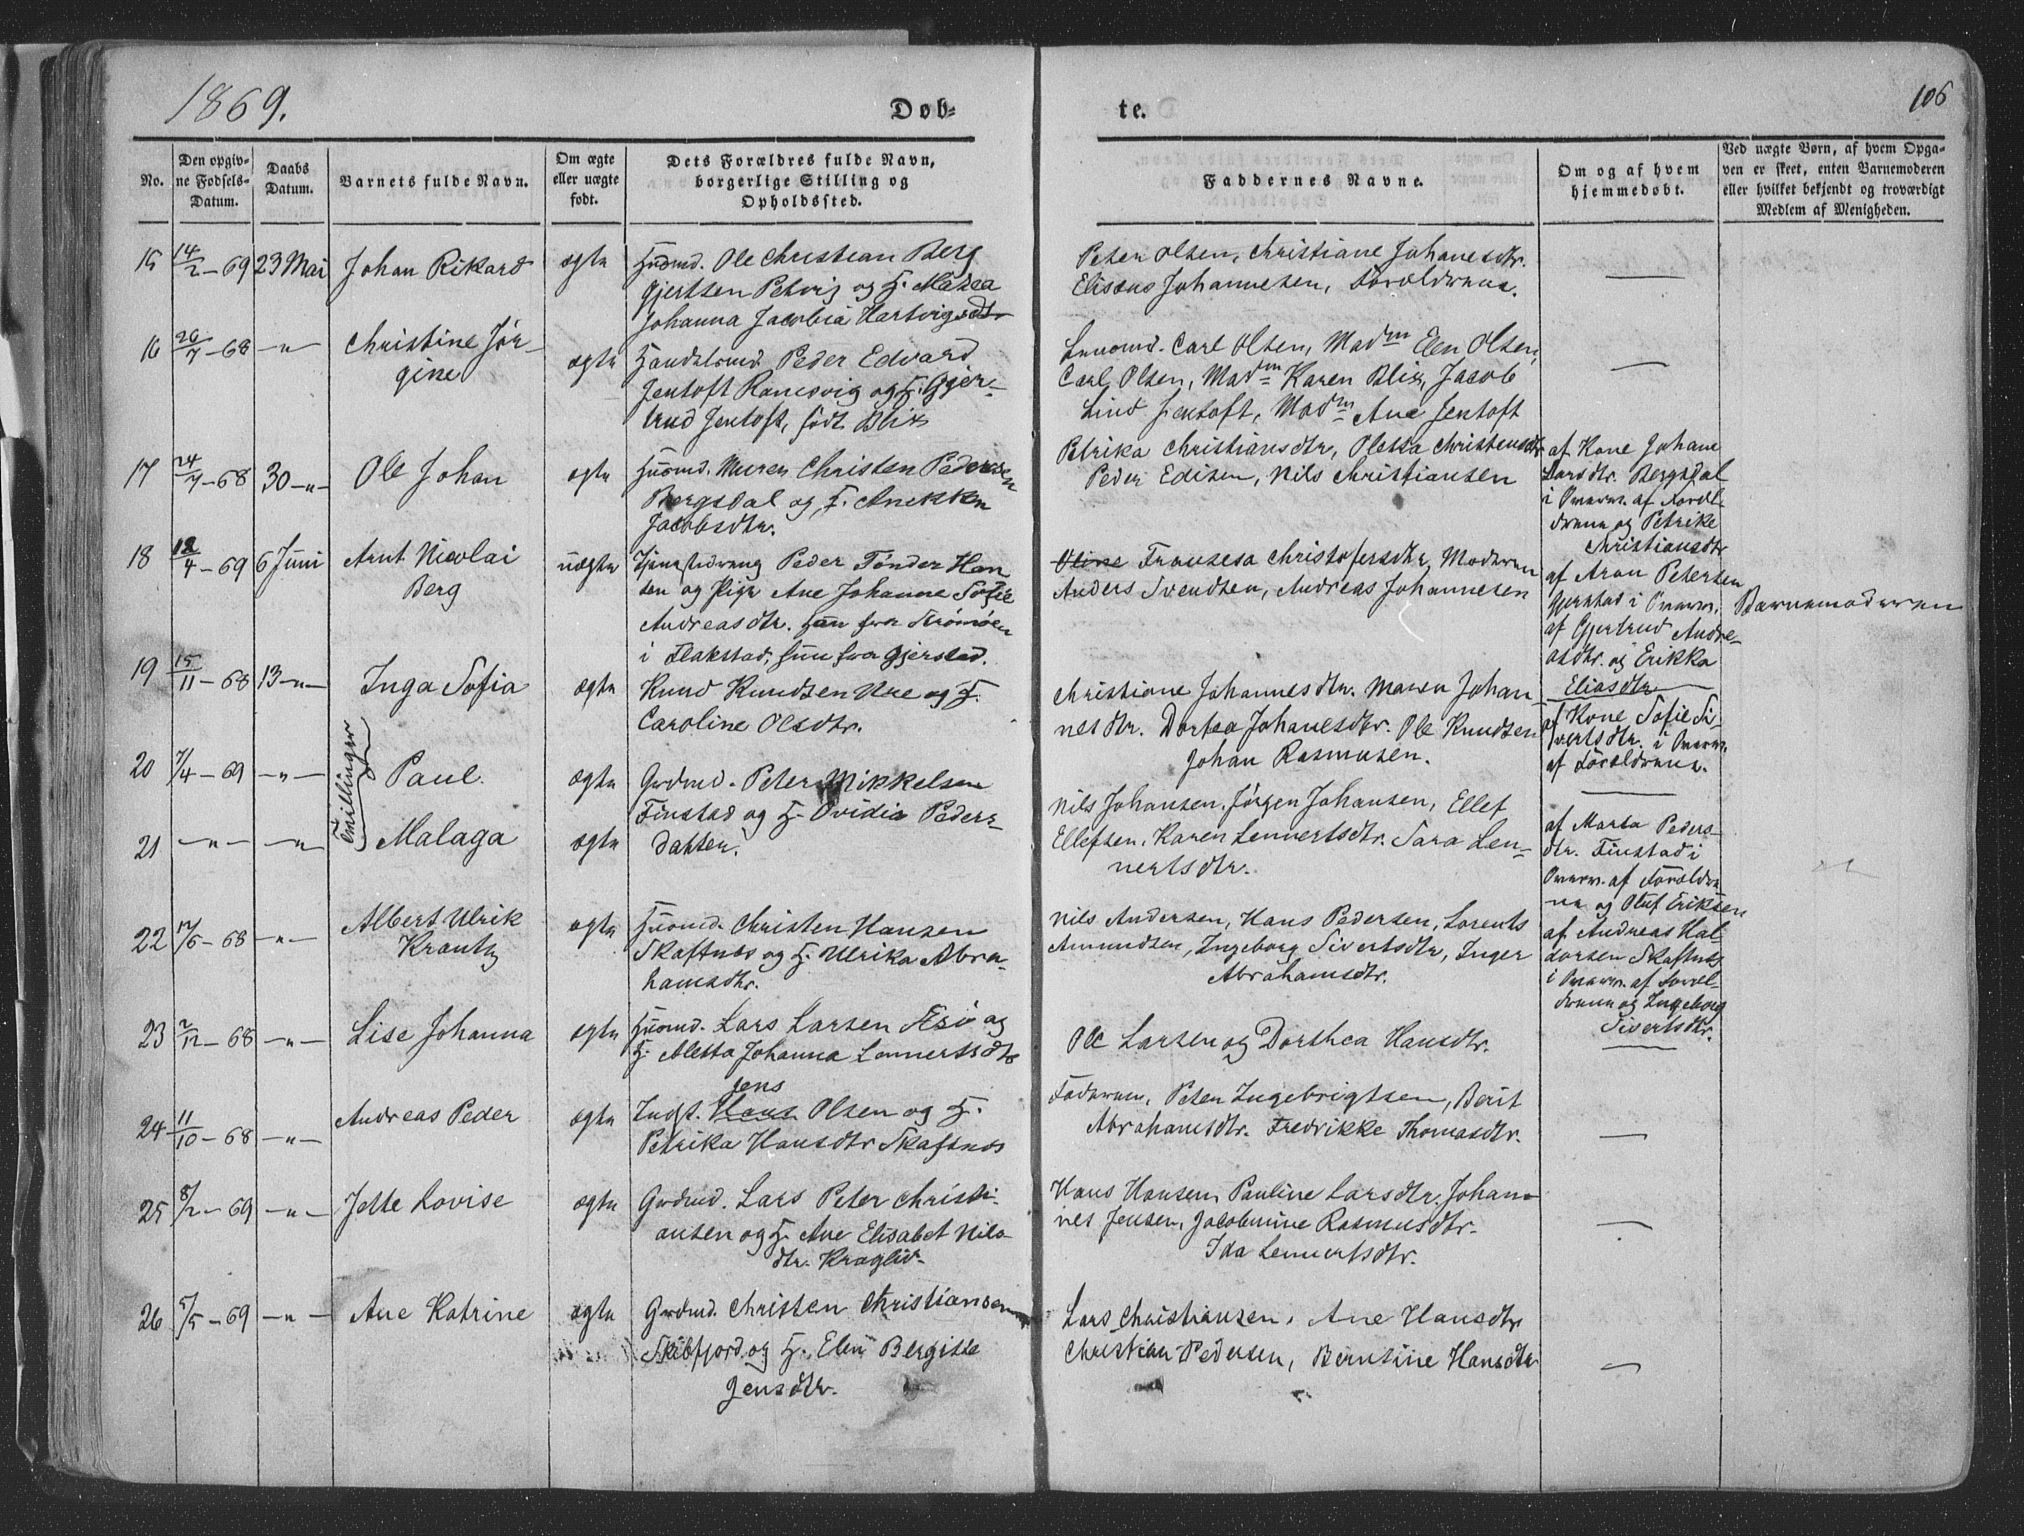 1869.
Døb-
te.
106
No.
Den opgiv-
ne Fødsels-
Datum.
Daabs
Datum.
Barnets fulde Navn.
Om ægte
eller uægte
født.
Dets Forældres fulde Navn,
borgerlige Stilling og
Opholdssted.
Faddernes Navne.
Om og af hvem
hjemmedøbt.
Ved uægte Børn, af hvem Opga-
ven er skeet, enten Barnemoderen
eller hvilket bekjendt og troværdigt
Medlem af Menigheden.
15 14/2-69 23 Mai Johan Rikard ægte
Huusmd. Ole Christian Berg
Gjertsen Petvig og H. Maren
Johanna Jacobia Hartvigsdtr
Peter Olsen, Christiane Johanesdtr.
Elisæus Johannesen, Forældrene.
16 26/7-68 -"- Christine Jør-
gine
ægte
Handelsmd. Peder Edvard
Jentoft Ramsvig og H. Gjer-
trud Jentoft, født Blix
Carl Olsen, Madm Elen Olsen,
Carl Olsen, Madm Karen Blix, Jacob
Lind Jentoft, Madm Ane Jentoft
17 24/7-68 30-"- Ole Johan ægte
Huusmd. Murer Christen Pedersen
Bergsdal og H. Anekken
Jacobsdtr.
Petrika Christiansdtr, Oletta Christensdtr
Peder Edisen, Nils Christiansen
af Kone Johane
Larsdtr. Bergsdal
i Overv. af Foræl-
drene og Petrike
Christiansdtr
18 12/4-69 6 Juni Arnt Nicolai
Berg
uægte
Tjenestedreng Peder Tønder Han
sen og Pige Ane Johanne Sofie
Andreasdtr. Han fra Strømøen
i Flakstad, hun fra Gjerstad.
Oline Fransesa Christofersdtr, Moderen
Anders Svendsen, Andreas Johannesen
af Aron Petersen
Gjerstad i Overv.
af Gjertrud Andre-
asdtr. og Erikka
Eliasdtr
Barnemoderen
19 15/11-68 13-"- Inga Sofia ægte
Knud Knudsen Nue og H.
Caroline Olsdtr.
Christiane Johannesdtr. Maren Johan-
nesdtr. Dortea Johanesdtr. Ole Knudsen
Johan Rasmusen.
af Kone Sofie Si
vertsdtr. i Overv.
af Forældrene.
Tvillinger
20 7/4-69 -"- Paul. ægte
Grdmd. Peter Mikkelsen
Finstad og H. Ovidia Peders-
datter.
Nils Johansen, Jørgen Johansen, Ellef
Ellefsen, Karen Lennertsdtr. Sara Len-
nertsdtr.
21 -"- -"- Malaga ægte
af Marta Peders-
dtr. Finstad i
Overv. af Forældre
ne og Oluf Eriksen
22 17/6-68 -"- Albert Ulrik
Krantz
ægte
Huusmd. Christen Hansen
Skaftnæs og H. Ulrika Abra-
hamsdtr.
Nils Andersen, Hans Pedersen, Lorents
Amundsen, Ingeborg Sivertsdtr, Inger
Abrahamsdtr.
af Andreas Hal-
dorsen Skaftnæs
i Overv. af Foræl-
drene og Ingeborg
Sivertsdtr.
23 2/12-68 -"- Lise Johanna ægte
Huusmd. Lars Larsen Æsø og
H. Aletta Johanna Lennertsdtr
Ole Larsen og Dorthea Hansdtr.
24 11/10-68 -"- Andreas Peder ægte
Jens
Indst. Hans Olsen og H.
Petrika Hansdtr Skaftnæs
Faderen, Peter Ingebrigtsen, Berit
Abrahamsdtr. Fredrikke Thomasdtr.
25 8/2-69 -"- Jette Lovise ægte
Grdmd. Lars Peter Christi-
ansen og H. Ane Elisabet Nils-
dtr. Kraglid.
Hans Hansen, Pauline Larsdtr. Johan-
nes Jensen, Jacobmine Rasmusdtr.
Ida Lennertsdtr.
26 5/5-69 -"- Ane Katrine ægte
Grdmd. Christen Christiansen
Skibfjord og H. Elen Bergitte
Jensdtr.
Lars Christiansen, Ane Hansdtr
Christian Pedersen, Berntine Hansdtr